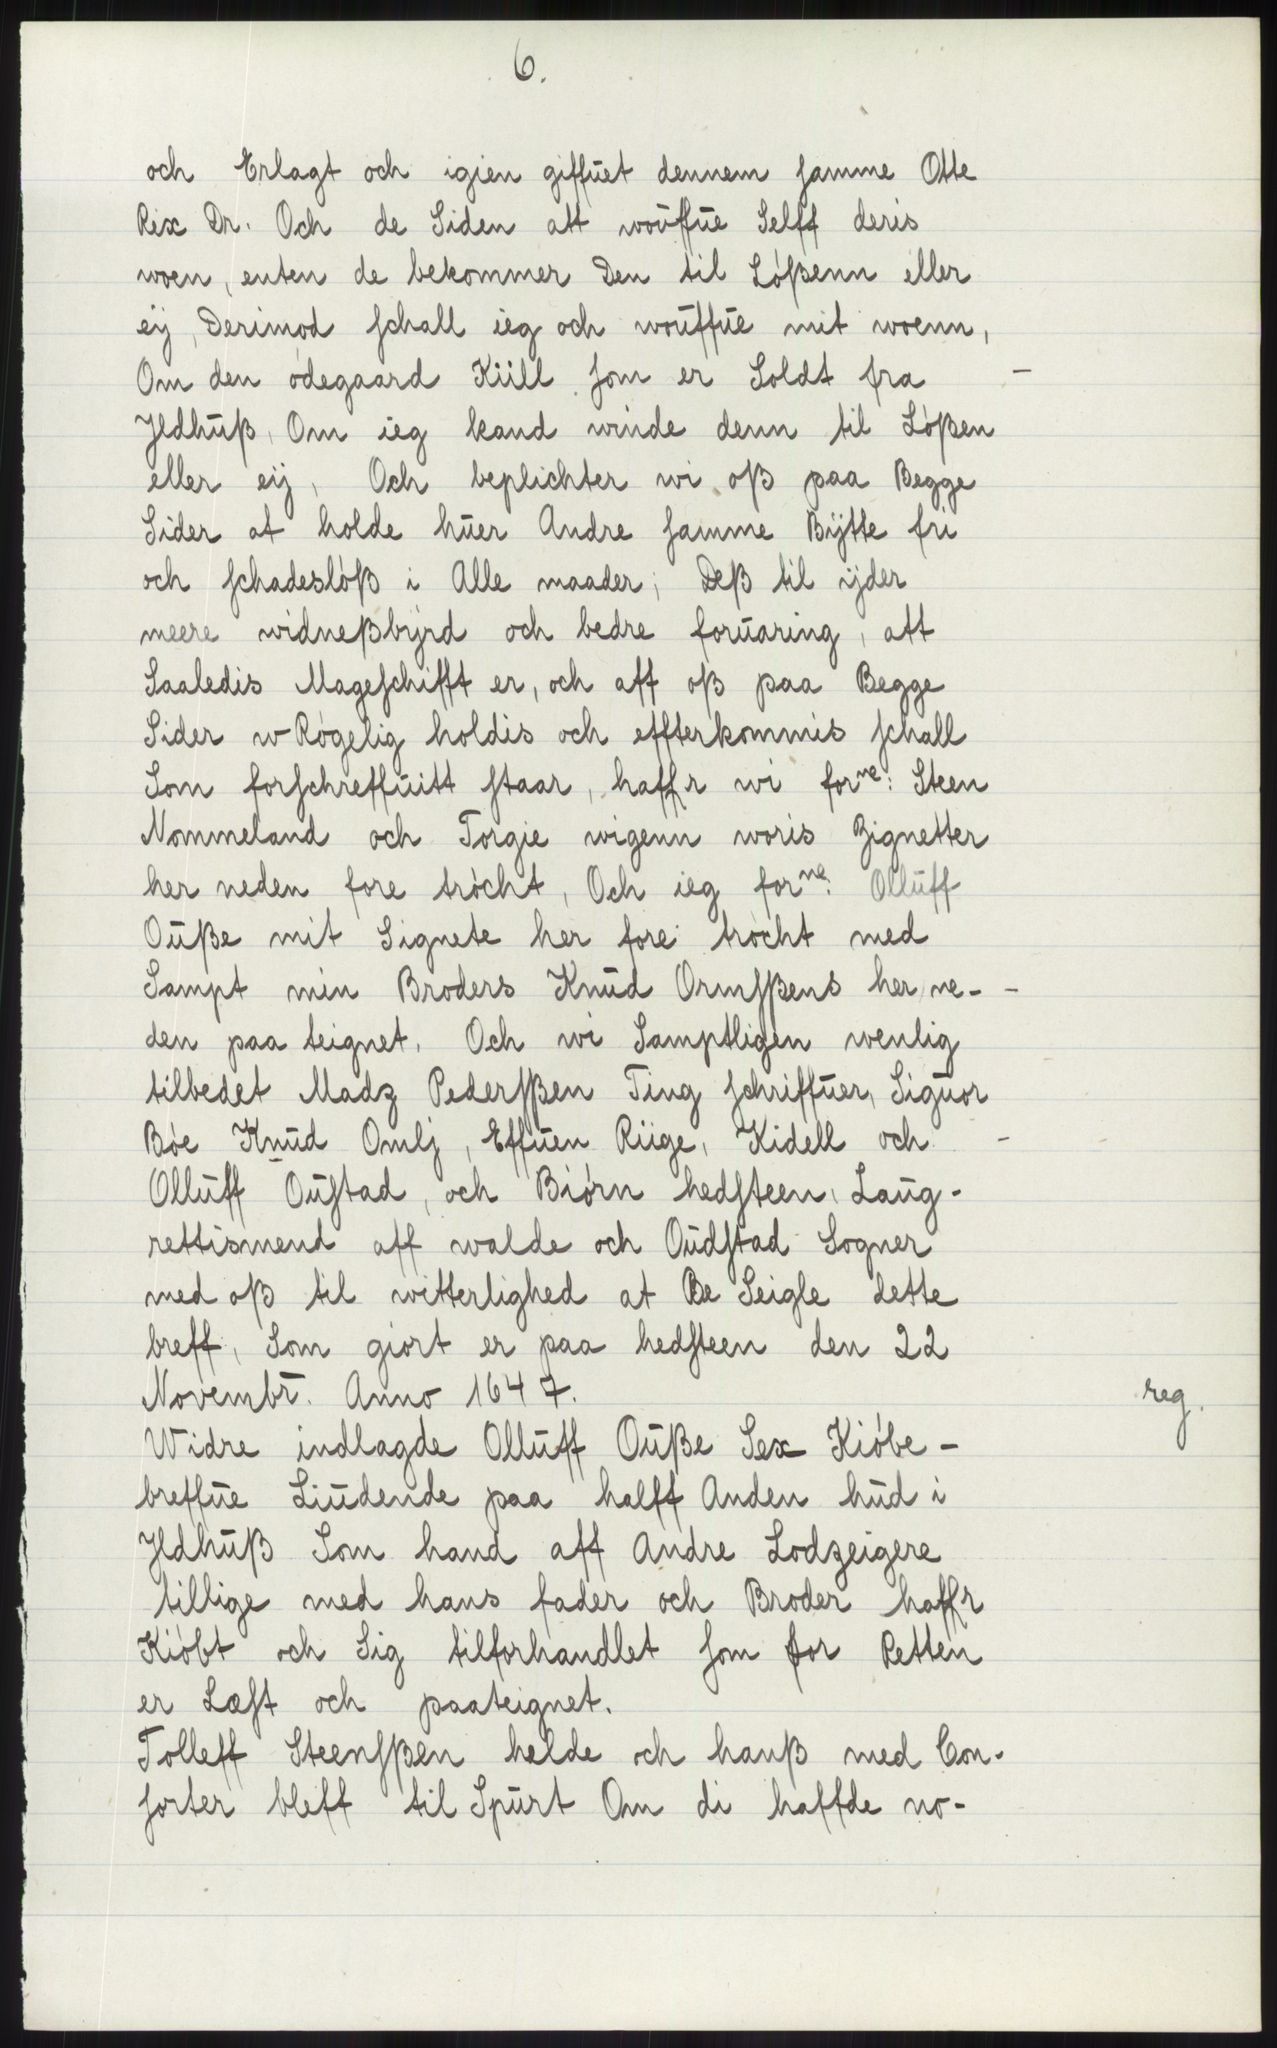 6.
och Erlagt och igien giffuet dennem samme Otte
Rix Dr. Och de Siden att wouffue Selff deris
woen, enten de bekommer Den til Lößenn eller
eij, Derimod schall ieg och wouffue mit woenn,
Om den ödegaard Kiill som er Soldt fra –
Jldhuß, Om ieg kand winde denn til Lößen
eller eij, Och beplichter wi oß paa Begge
Sider at holde huer Andre samme Bytte fri
och schadeslöß i Alle maader; Deß til yder
meere widneßbyrd och bedre foruaring, att
Saaledis Mageschifft er, och aff oß paa Begge
Sider w-Rögelig holdis och effterkommis schall
Som forschreffuitt staar, haffr wi forne: Steen
Nommeland och Torgie wigenn woris Zignetter
her neden fore tröcht, Och ieg forne: Olluff
Ouße mit Signete her fore tröcht med
Sampt min Broders Knud Ormsßens her ne- –
den paa teignet. Och wi Samptligen wenlig
tilbedet Madz Pedersßen Ting schriffuer, Siguor
Böe Knud Omlj, Effuen Riige, Kidell och –
Olluff Oustad, och Biörn hedsteen, Laug-
rettismend aff walde och Oudstad Sogner
med oß til witterlighed at Be Seigle dette
breff, Som giort er paa hedsteen den 22
Novembr. Anno 1647. reg.
Widre indlagde Olluff Ouße Sex Kiöbe-
breffue Liudende paa halff Anden hud i
Jldhuß Som hand aff Andre Lodzeigere
tillige med hans fader och Broder haffr
Kiöbt och Sig tilforhandlet som for Retten
er Læst och paateignet.
Tolleff Steensßen helde och hanß med Con-
sorter bleff til Spurt Om di haffde no-